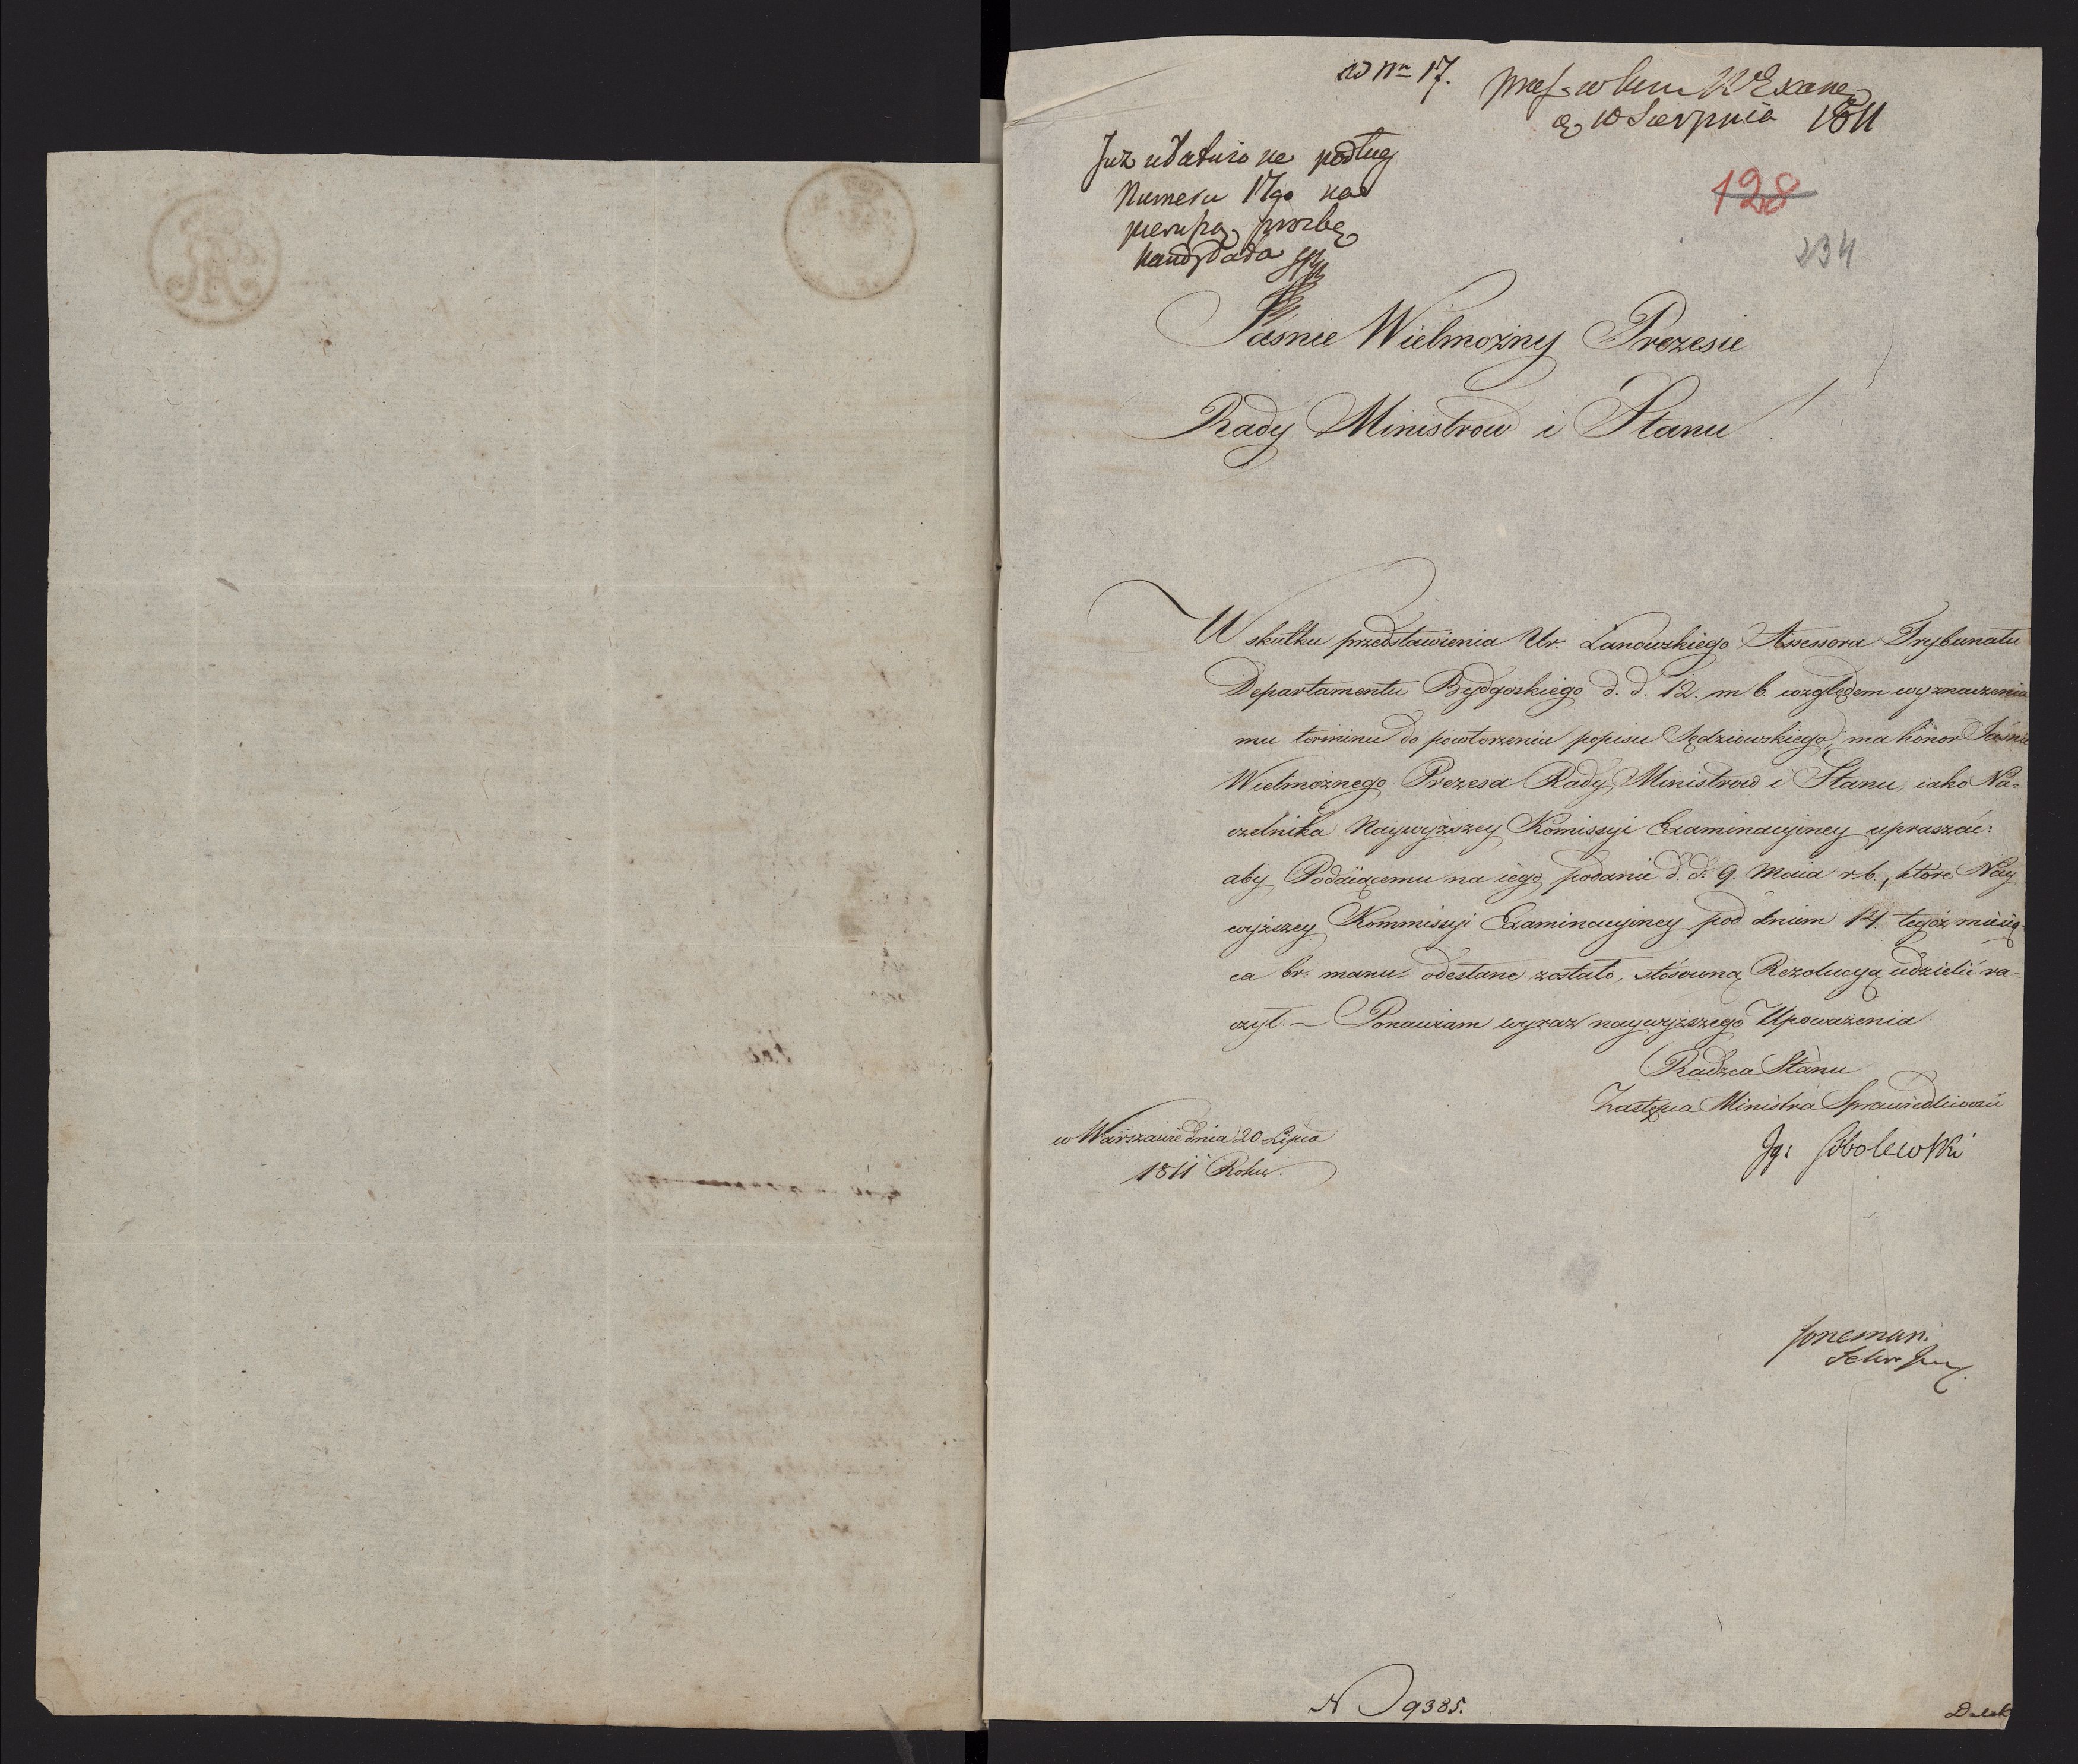 ad Nrm 17.
w Kom. N. Exam.
d. 10 Sierpnia 1811
Już ułatwione podług
Numeru 17go na
pierwszą prozbę
Kandydata
128
234
Jaśnie Wielmożny Prezesie
Rady Ministrow i Stanu!
W skutku przedstawienia Ur. Lanowskiego Assessora Trybunału
Departamentu Bydgoskiego d. d. 12. m. b. względem wyznaczenia
mu terminu do powtorzenia popisu Sędziowskiego, ma honor Jaśnie
Wielmożnego Prezesa Rady Ministrow i Stanu, iako Na=
czelnika Naywyższey Komissyi Examinacyiney upraszać:
aby Podaiącemu na iego podanie d. d. 9. Maia r. b., które Nay
wyższey Kommissyi Examinacyiney pod dniem 14. tegoż miesią
ca br. manu: odesłane zostało, stosowną Rezolucyą udzielić ra=
czył. — Ponawiam wyraz naywyższego Upoważenia
Radzca Stanu
Zastępca Ministra Sprawiedliwości
w Warszawie dnia 20 Lipca
Ig: Sobolewski
1811 Roku.
N 9385.